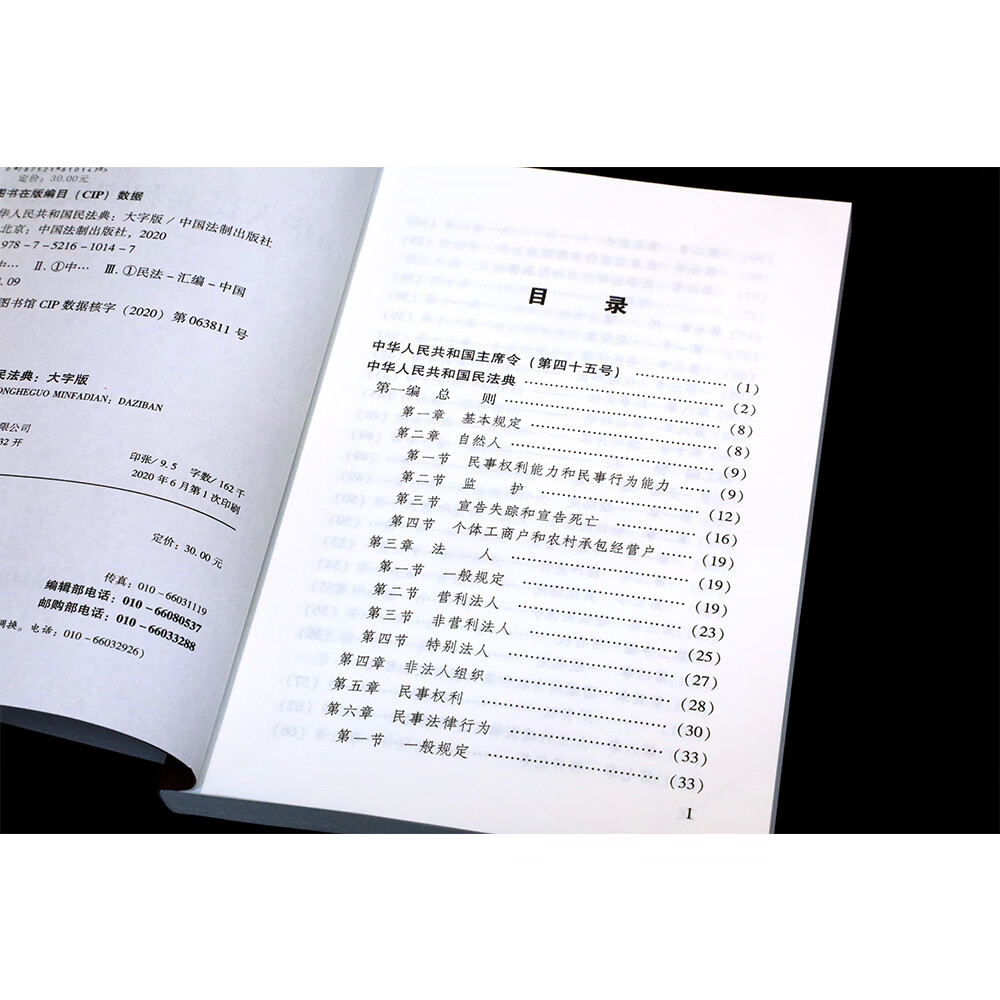 定价：30.00元
图书在版编目（CIP）数据
华人民共和国民法典：大字版/中国法制出版社
北京：中国法制出版社，2020
978-7-5216-1014-7
中… Ⅱ.①中… Ⅲ.①民法-汇编-中国
.09
图书馆CIP数据核字（2020）第063811号
民法典：大字版
ONGHEGUO MINFADIAN: DAZIBAN
限公司
32开
印张/9.5 字数/162千
2020年6月第1次印刷
定价：30.00元
传真：010-66031119
编辑部电话：010-66080537
邮购部电话：010-66033288
调换。电话：010-66032926）
目 录
中华人民共和国主席令（第四十五号）…………（1）
中华人民共和国民法典…………（2）
第一编 总 则…………（8）
第一章 基本规定…………（8）
第二章 自然人…………（9）
第一节 民事权利能力和民事行为能力……（9）
第二节 监 护…………（12）
第三节 宣告失踪和宣告死亡…………（16）
第四节 个体工商户和农村承包经营户……（19）
第三章 法 人…………（19）
第一节 一般规定…………（19）
第二节 营利法人…………（23）
第三节 非营利法人…………（25）
第四节 特别法人…………（27）
第四章 非法人组织…………（28）
第五章 民事权利…………（30）
第六章 民事法律行为…………（33）
第一节 一般规定…………（33）
1